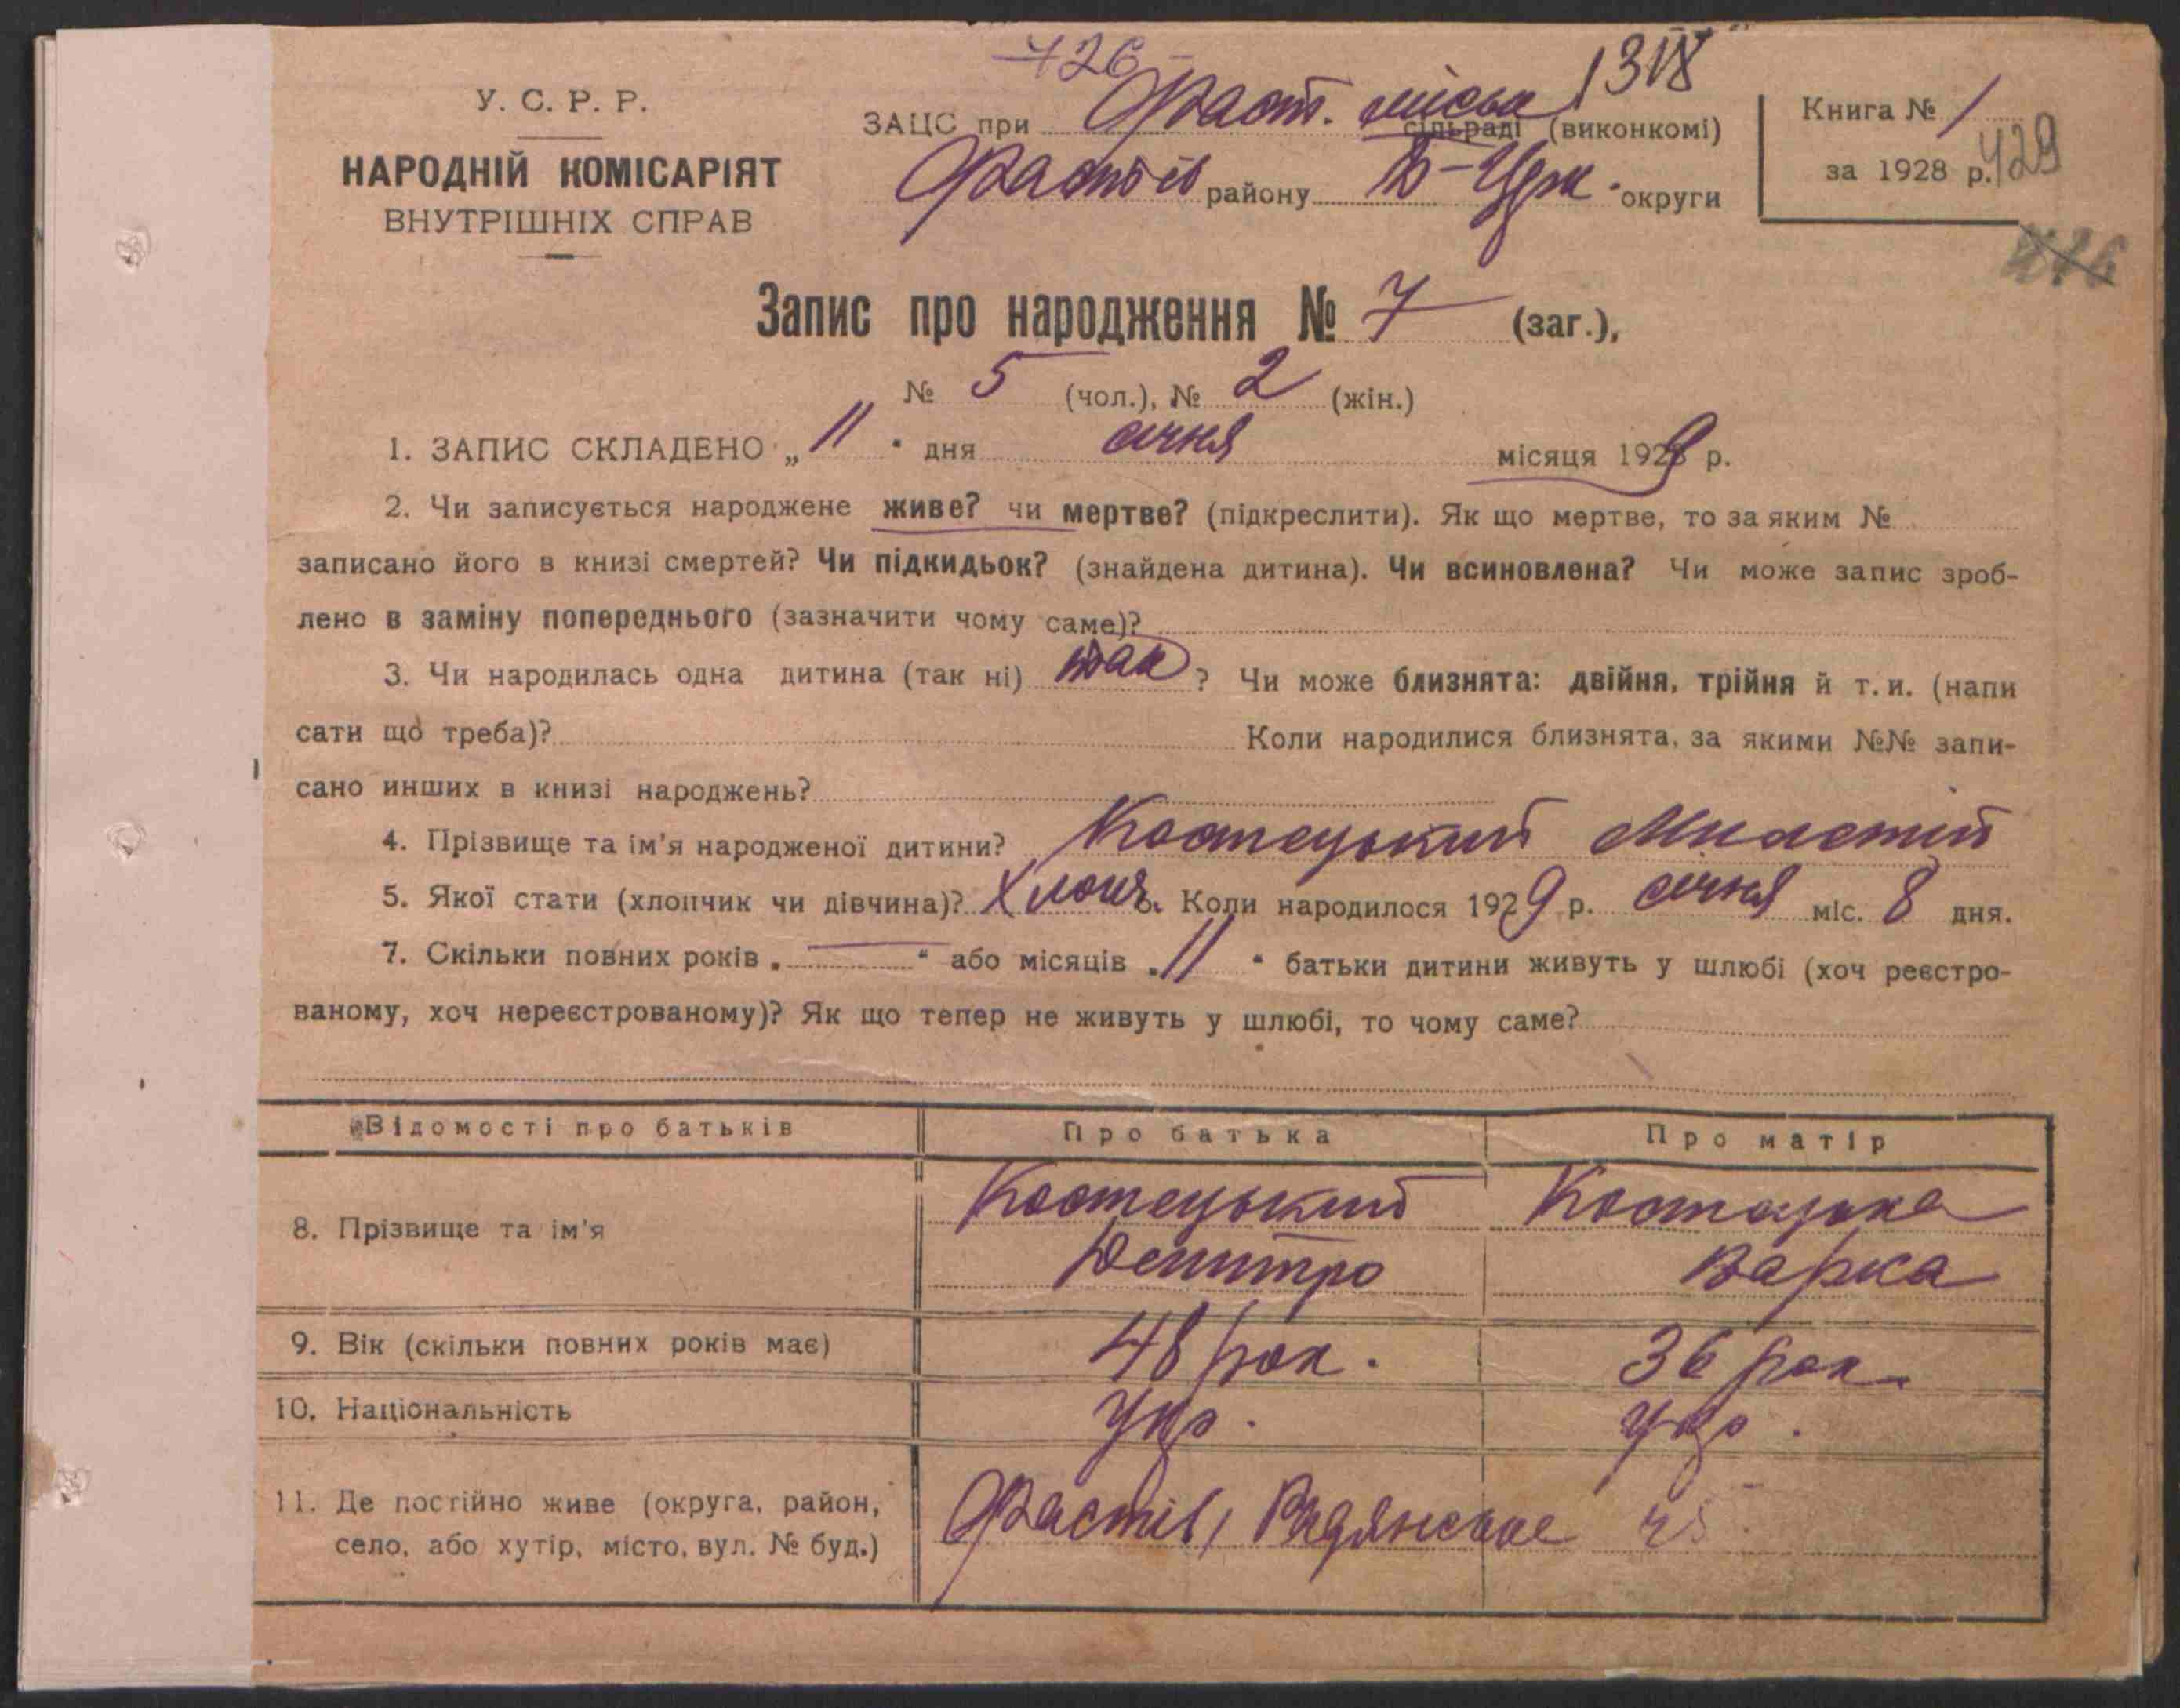 726
У. С. Р. Р.
НАРОДНІЙ КОМІСАРІЯТ
ВНУТРІШНІХ СПРАВ
ЗАЦС при Фаст. міська сільраді (виконкомі)
Фастів району Б-Церк. округи
Книга № 1
за 1928 р. 429
Запис про народження № 7 (заг.),
№ 5 (чол.), № 2 (жін.)
1. ЗАПИС СКЛАДЕНО „11" дня січня місяця 1929 р.
2. Чи записується народжене живе? чи мертве? (підкреслити). Як що мертве, то за яким №
записано його в книзі смертей? Чи підкидьок? (знайдена дитина). Чи всиновлена? Чи може запис зроб-
лено в заміну попереднього (зазначити чому саме)?
3. Чи народилась одна дитина (так ні) так ? Чи може близнята: двійня, трійня й т. и. (напи
сати що треба)? Коли народилися близнята, за якими №№ запи-
сано инших в книзі народжень?
4. Прізвище та ім'я народженої дитини? Костецький
5. Якої стати (хлопчик чи дівчина)? Хлопч. 6. Коли народилося 1929 р. січня міс. 8 дня.
7. Скільки повних років „—" або місяців „11" батьки дитини живуть у шлюбі (хоч реєстро-
ваному, хоч нереєстрованому)? Як що тепер не живуть у шлюбі, то чому саме?
Відомості про батьків Про батька Про матір
8. Прізвище та ім'я Костецький Костецька
Демитро Варка
9. Вік (скільки повних років має) 48 рок. 36 рок.
10. Національність Укр. Укр.
11. Де постійно живе (округа, район,
село, або хутір, місто, вул. № буд.) Фастів, Радянська